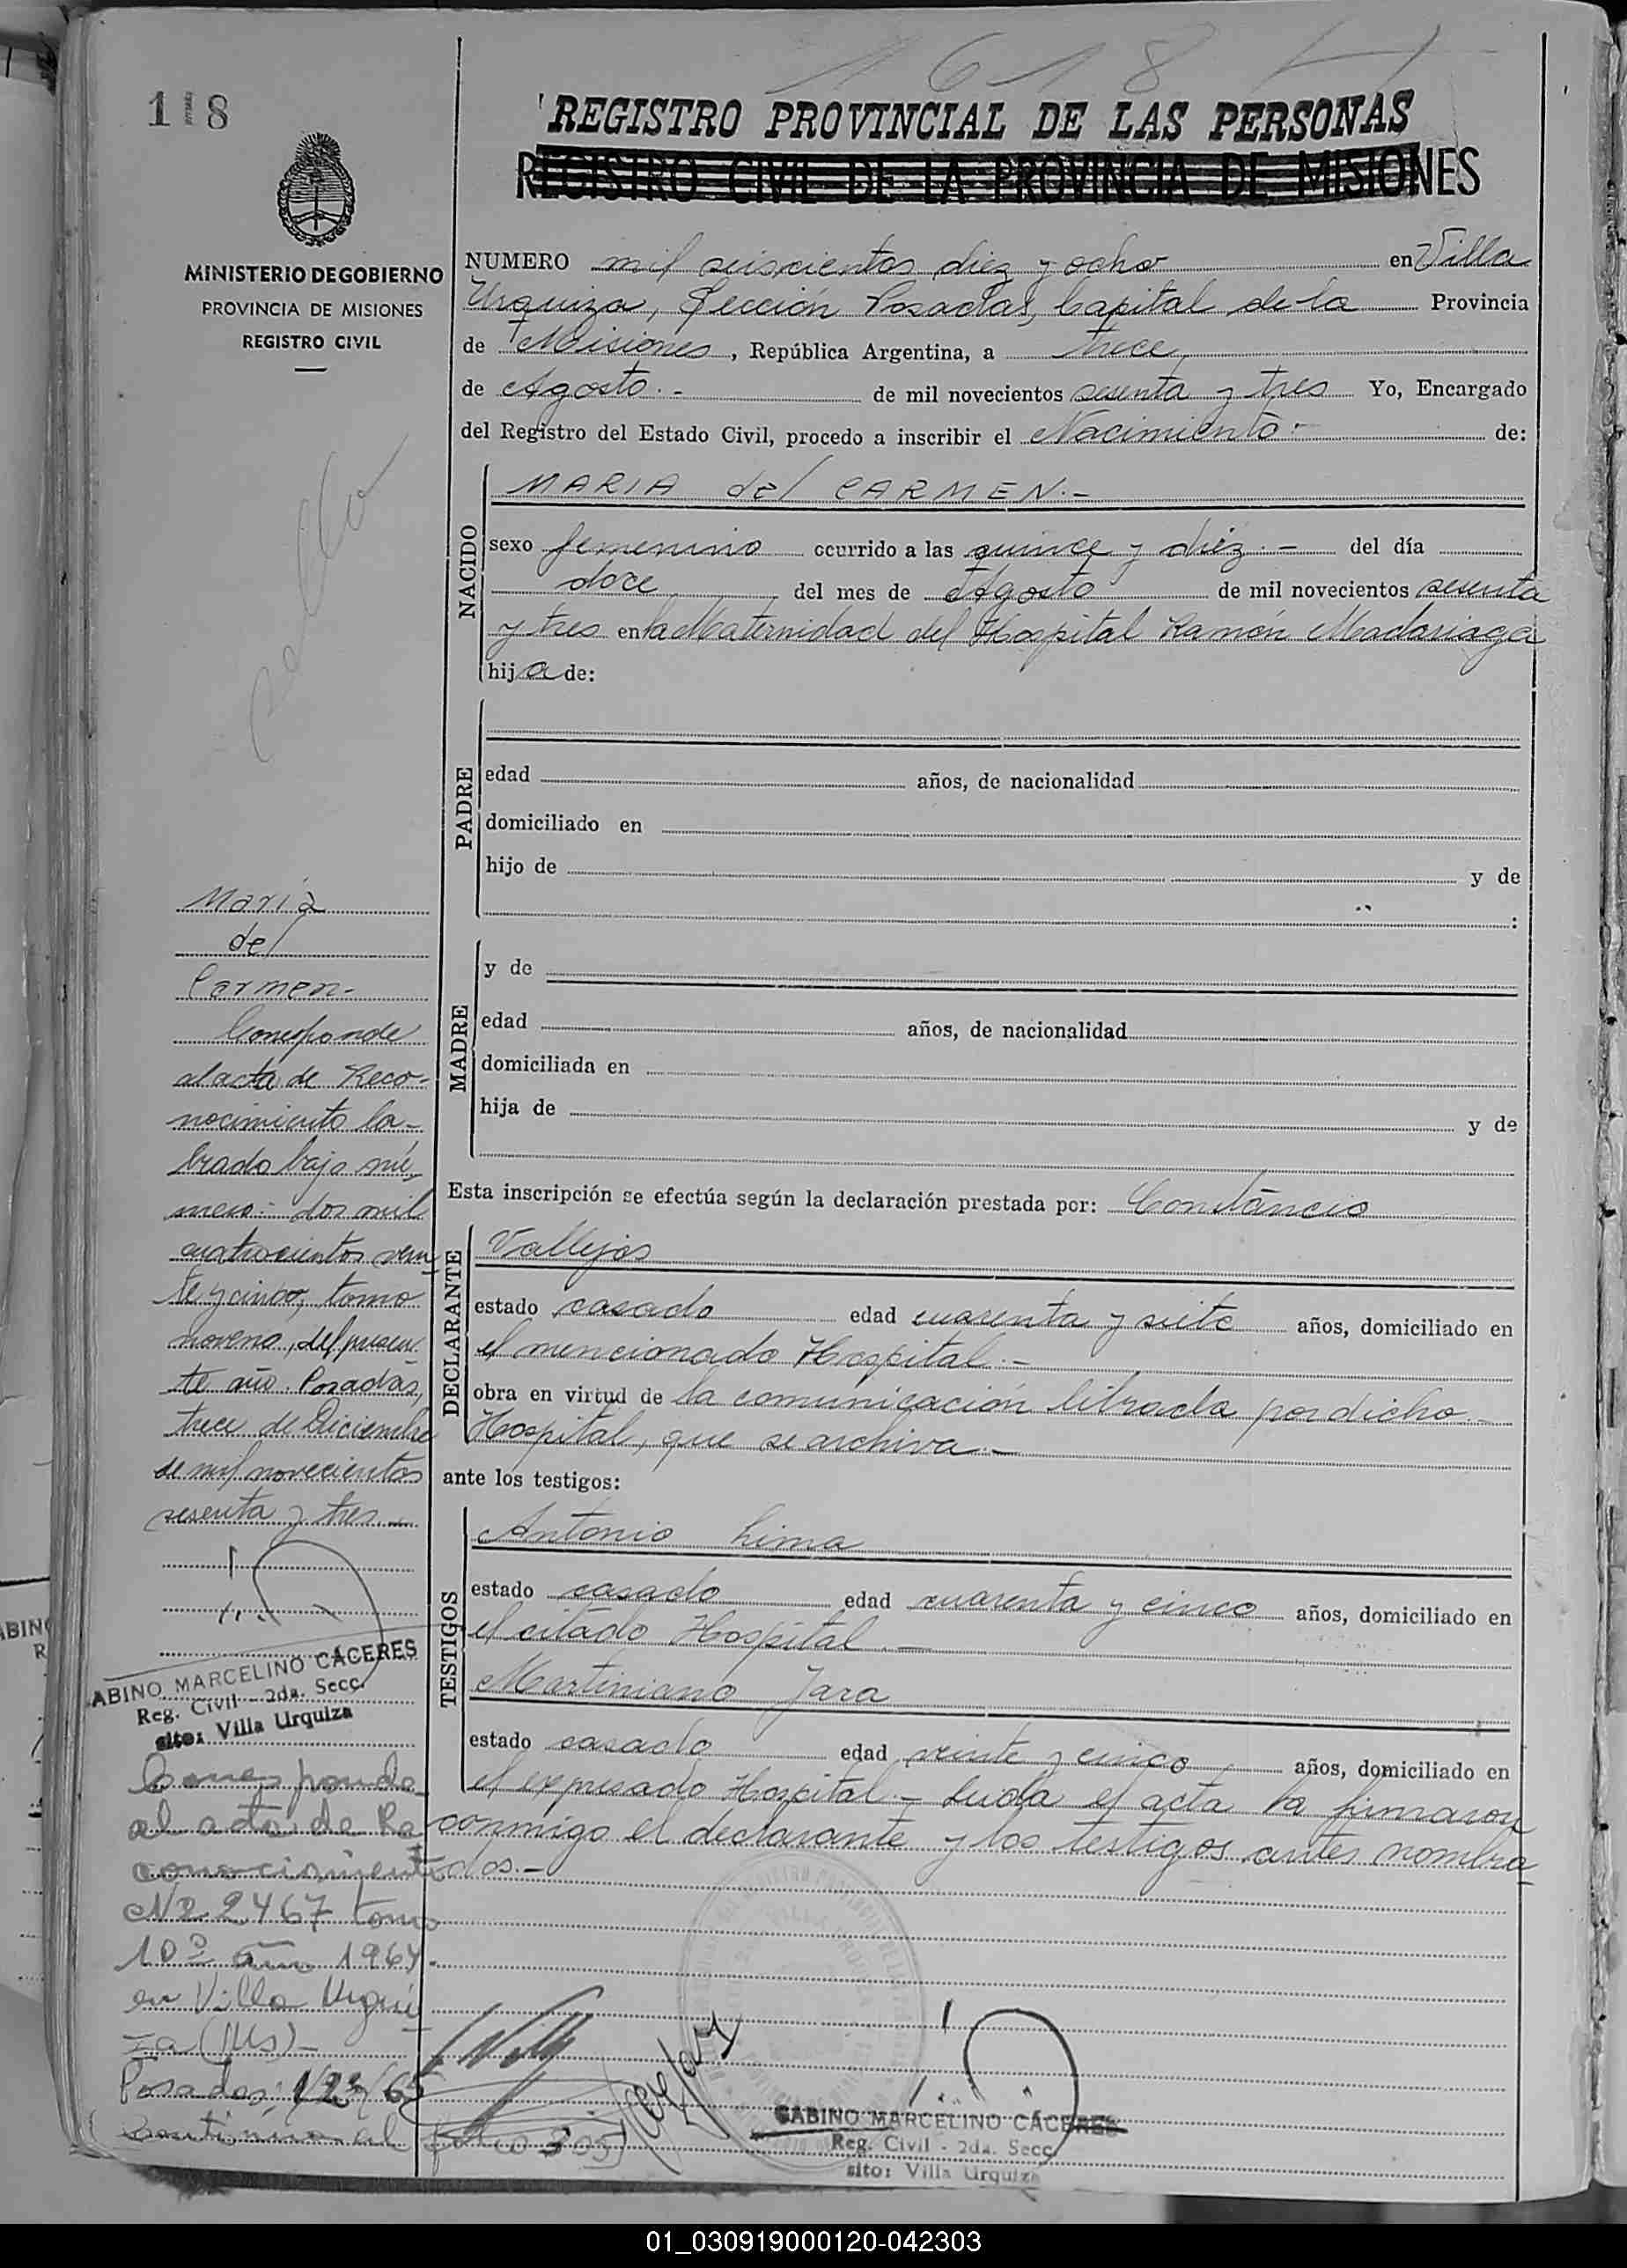 1618
118
REGISTRO PROVINCIAL DE LAS PERSONAS
REGISTRO CIVIL DE LA PROVINCIA DE MISIONES
MINISTERIO DE GOBIERNO
PROVINCIA DE MISIONES
REGISTRO CIVIL
NUMERO mil seiscientos diez y ocho en Villa
Urquiza, Sección Posadas, Capital de la Provincia
de Misiones, República Argentina, a trece
de Agosto.- de mil novecientos sesenta y tres Yo, Encargado
del Registro del Estado Civil, procedo a inscribir el Nacimiento.- de:
NACIDO
MARIA del CARMEN.-
sexo femenino ocurrido a las quince y diez.- del día
doce del mes de Agosto de mil novecientos sesenta
y tres en la Maternidad del Hospital Ramón Madariaga
hija de:
PADRE
edad años, de nacionalidad
domiciliado en
hijo de y de
:
MADRE
y de
edad años, de nacionalidad
domiciliada en
hija de y de
Esta inscripción se efectúa según la declaración prestada por: Constancio
DECLARANTE
Vallejos
estado casado edad cuarenta y siete años, domiciliado en
el mencionado Hospital.-
obra en virtud de la comunicación librada por dicho
Hospital, que se archiva.-
ante los testigos:
TESTIGOS
Antonio Lima
estado casado edad cuarenta y cinco años, domiciliado en
el citado Hospital.-
Martiniano Jara
estado casado edad veinte y cinco años, domiciliado en
el expresado Hospital.- Leida el acta la firmaron
conmigo el declarante y los testigos antes nombra
dos.-
Maria
del
Carmen.-
Corresponde
al acta de Reco-
nocimiento la-
brado bajo nú-
mero: dos mil
cuatrocientos vein
te y cinco, tomo
noveno, del presen
te año. Posadas,
trece de Diciembre
de mil novecientos
sesenta y tres.-
SABINO MARCELINO CACERES
Reg. Civil - 2da. Secc.
sito: Villa Urquiza
Corresponde
al acta de Re
conocimiento
Nº 2467 tomo
10º año 1964
en Villa Urqui
za (Ms)-
Posadas: 1/23/65
Continua al folio 305
SABINO MARCELINO CACERES
Reg. Civil - 2da. Secc.
sito: Villa Urquiza
01_030919000120-042303